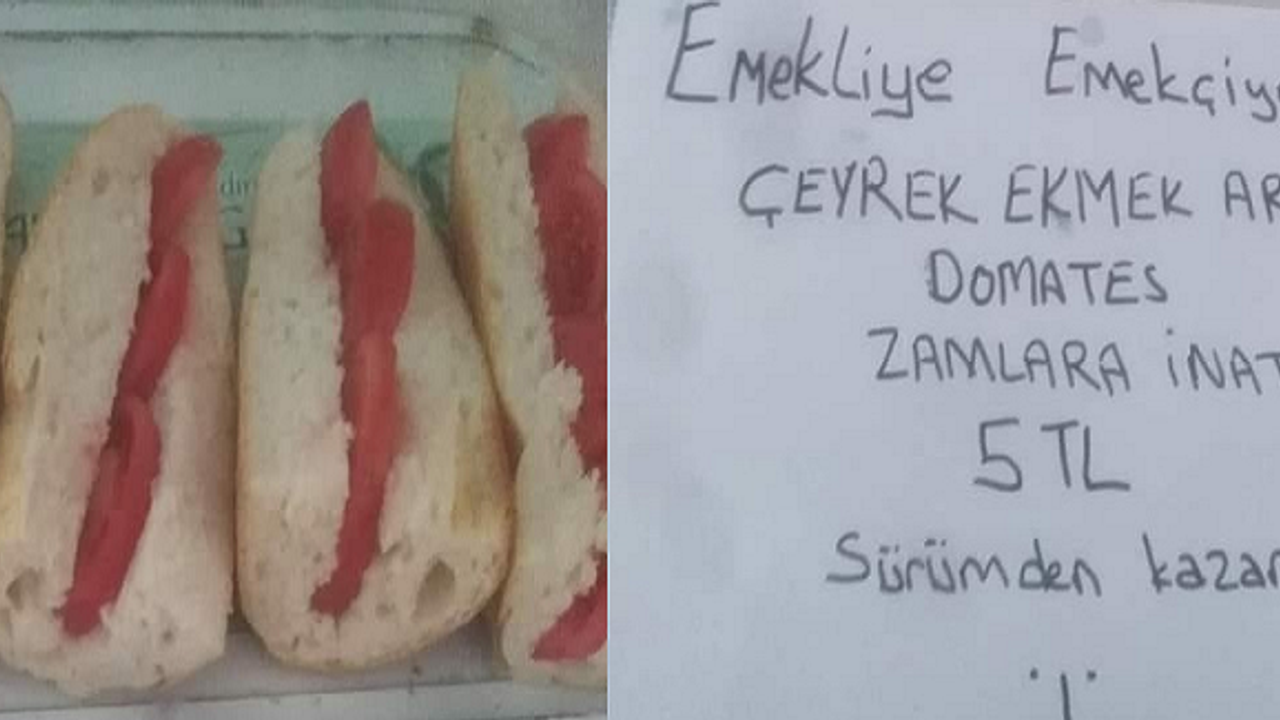 Emekliye Emekçiy
ÇEYREK EKMEK AR
DOMATES
ZAMLARA İNAT
5 TL
Sürümden kazan